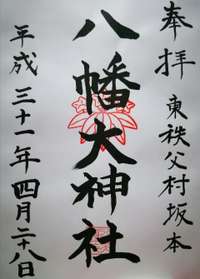 奉拝 東秩父村坂本
八幡大神社
平成三十一年四月二十八日